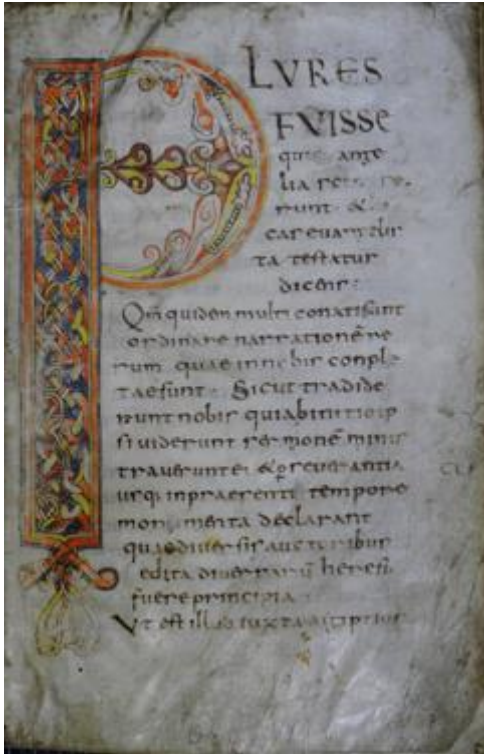 PLURES
FUISSE
qui
runt &
evangelis
ta testatur
dicens:
Qm̄ quidem multi conati sunt
ordinare narrationē re
rum quae in nobis conpl
tae sunt. Sicut tradide
runt nobis qui ab initio ip
si viderunt sermonē minis
traverunt ei & perseverantia
usq; in praesenti tempore
monumenta declarant
quae diversis auctoribus
edita diversarū heresū
fuere principia
Ut est illud iuxta aegiptios